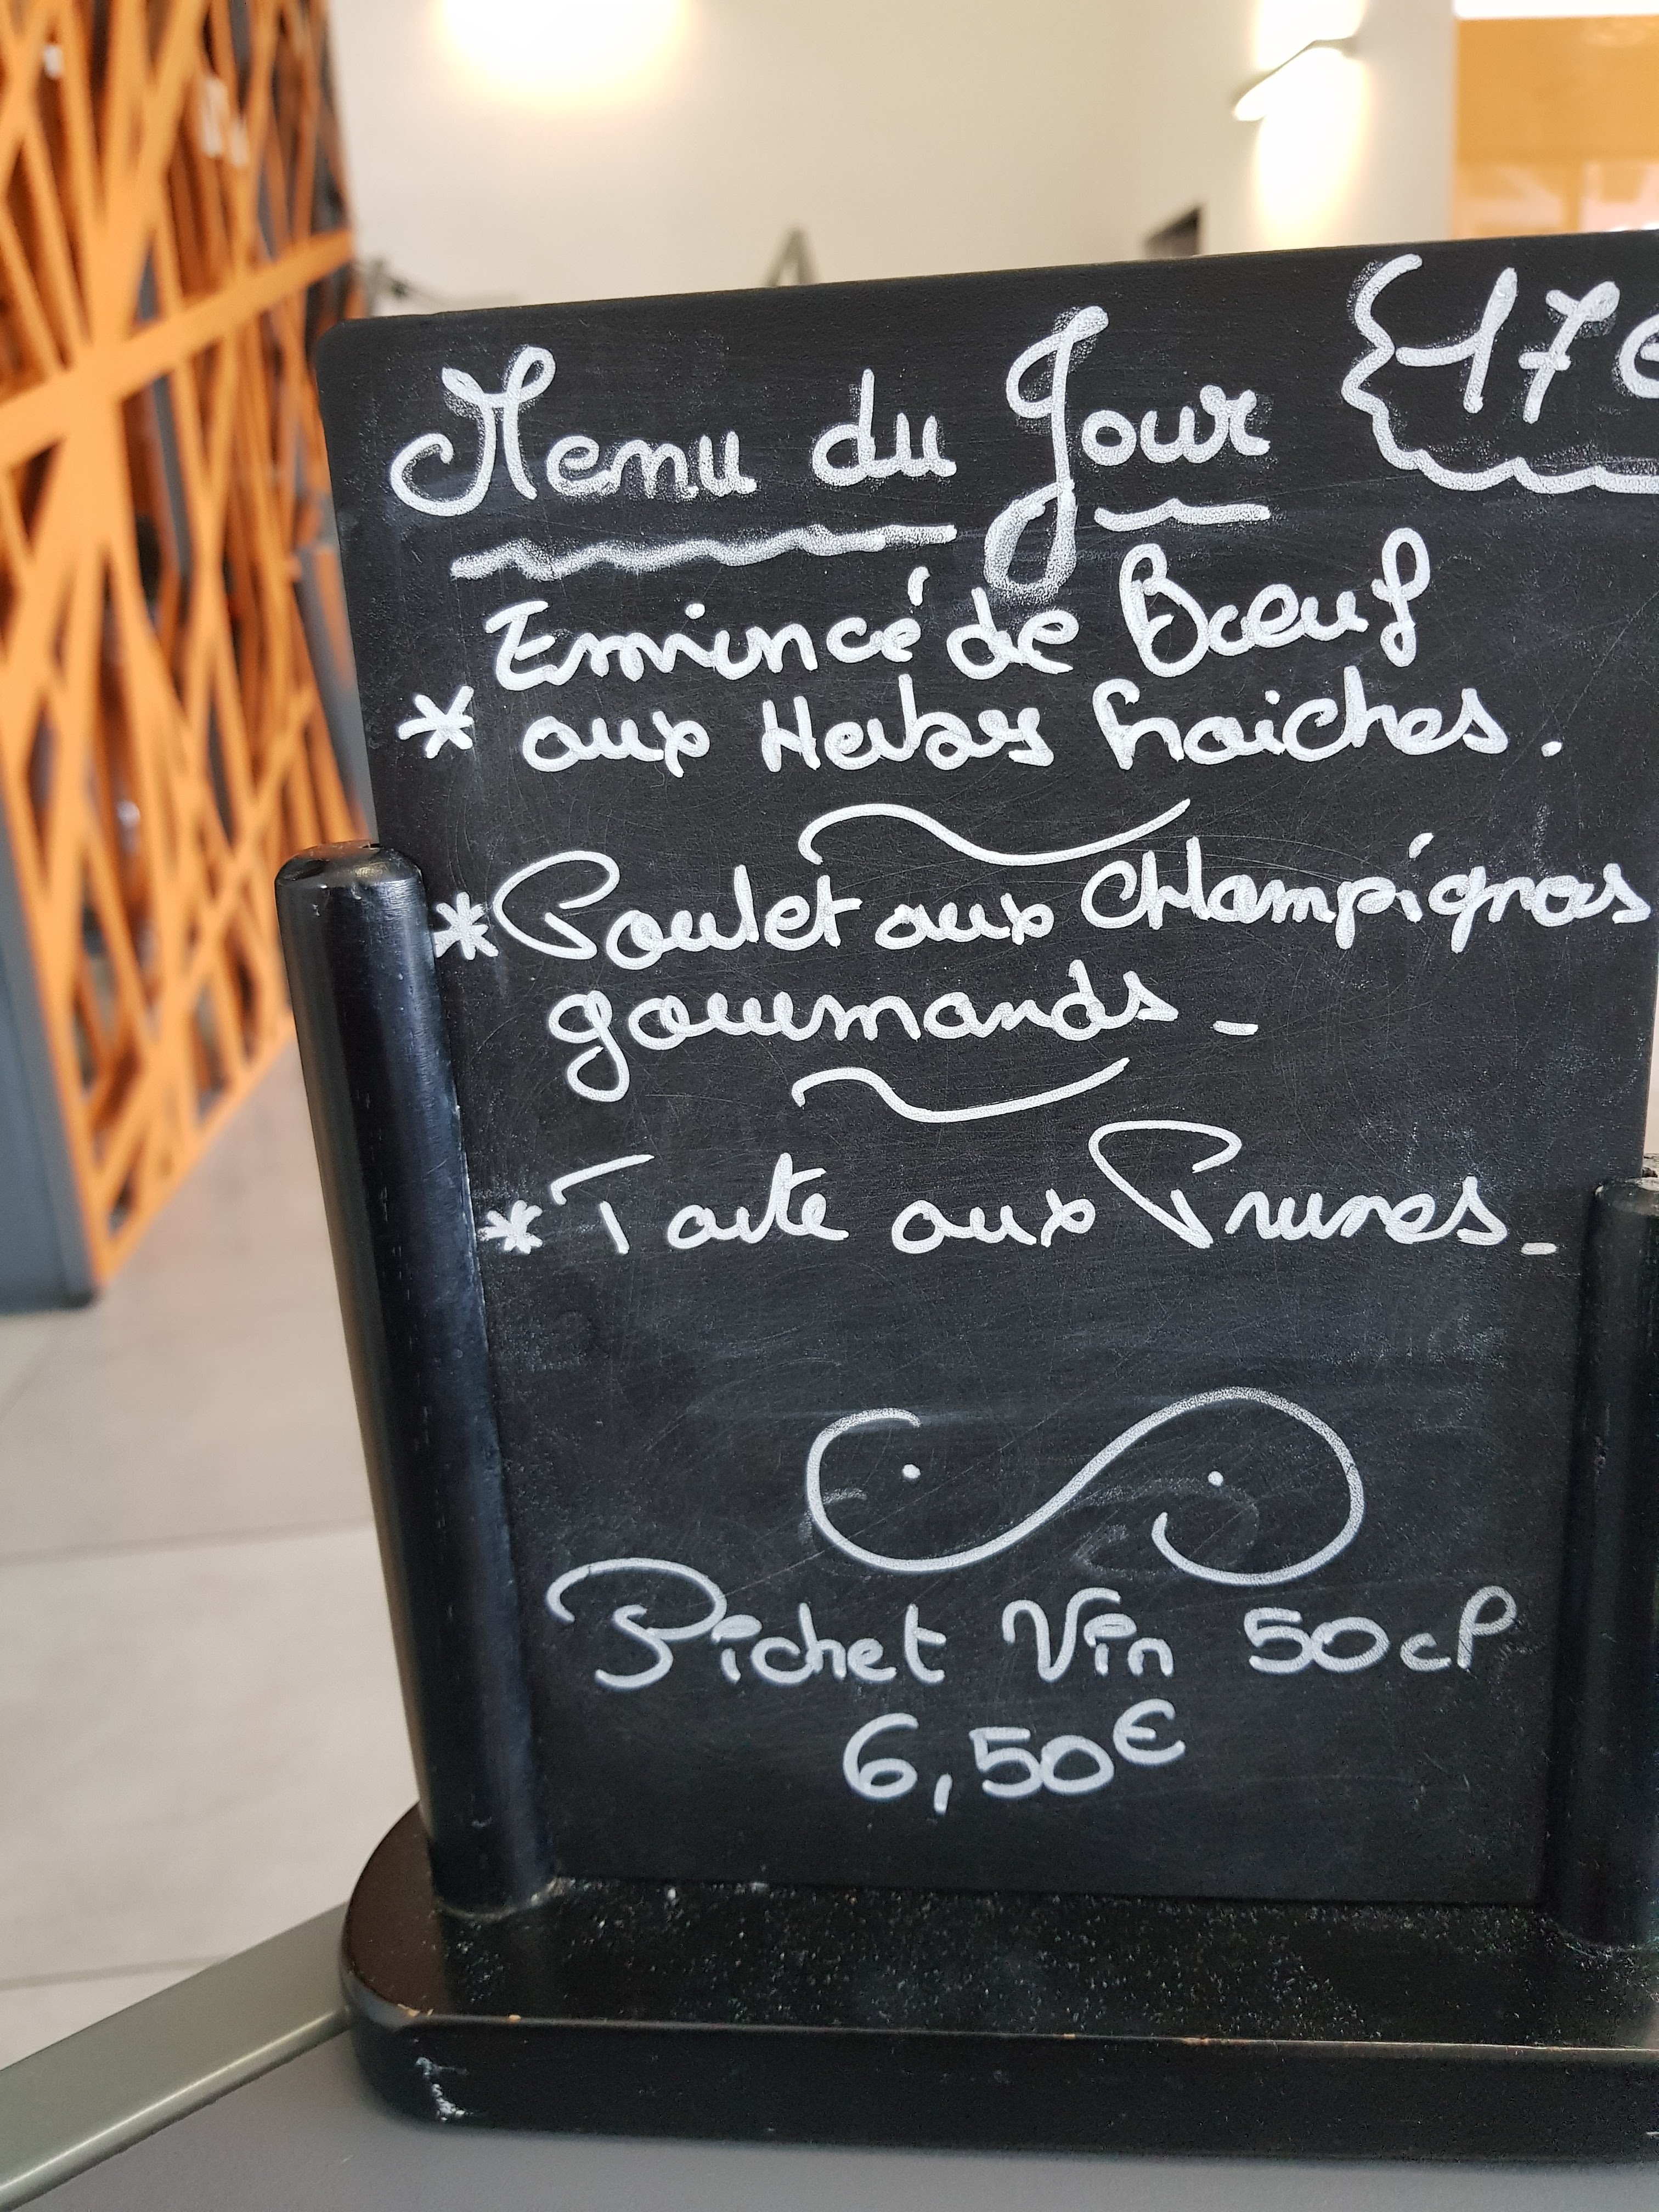 Menu du Jour 17€
Emincé de Bœuf
* aux Herbes fraiches.
* Poulet aux CHampignons
gourmands -
* Tarte aux Prunes -
Pichet Vin 50cl
6,50€